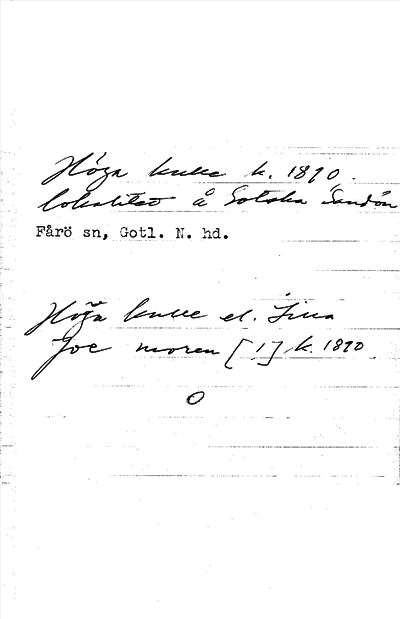 Höga kulle k. 1890.
lokalitet å Gotska Sandön
Fårö sn, Gotl. N. hd.
Höga kulle el. Lilla
Joe moren [!] k. 1890
O